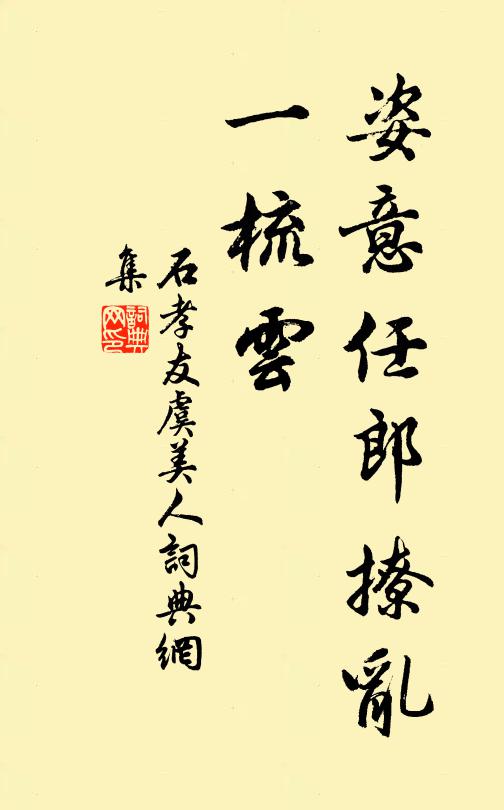 姿意任郎撩亂
一梳雲
石孝友虞美人詞典網
集
詞典
网印